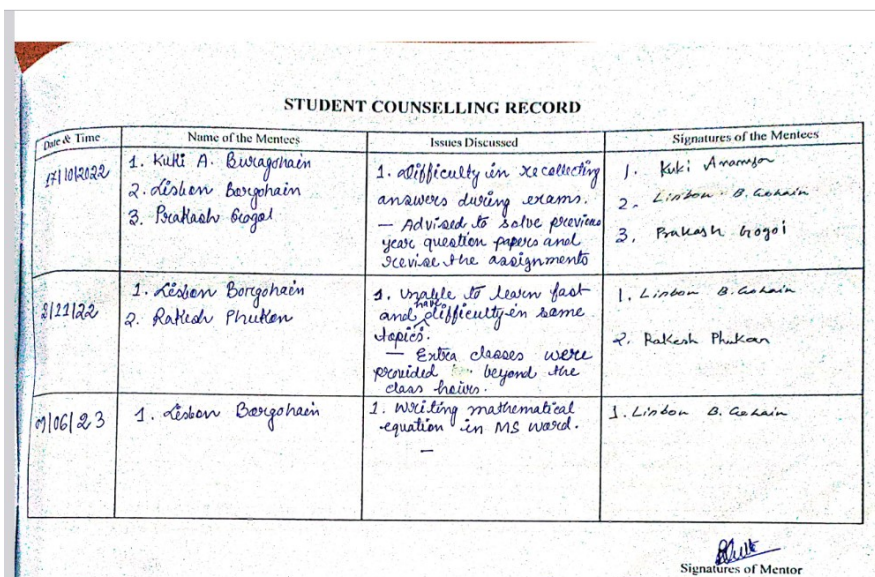 STUDENT COUNSELLING RECORD
Date & Time
Name of the Mentees
Issues Discussed
Signatures of the Mentees
17/10/2022
1. Kuki A. Buragohain
2. Lisbon Borgohain
3. Prakash Gogoi
1. Difficulty in recollecting
answers during exams.
— Advised to solve previous
year question papers and
revise the assignments
1. Kuki
2. B. Gohain
3. Prakash Gogoi
/11/22
1. Lisbon Borgohain
2. Rakesh Phukon
1. Unable to learn fast
and have difficulty in some
topics.
— Extra classes were
provided beyond the
class hours.
1. B. Gohain
2. Rakesh Phukan
/06/23
1. Lisbon Borgohain
1. Writing mathematical
equation in MS word.
—
1. B. Gohain
Signatures of Mentor